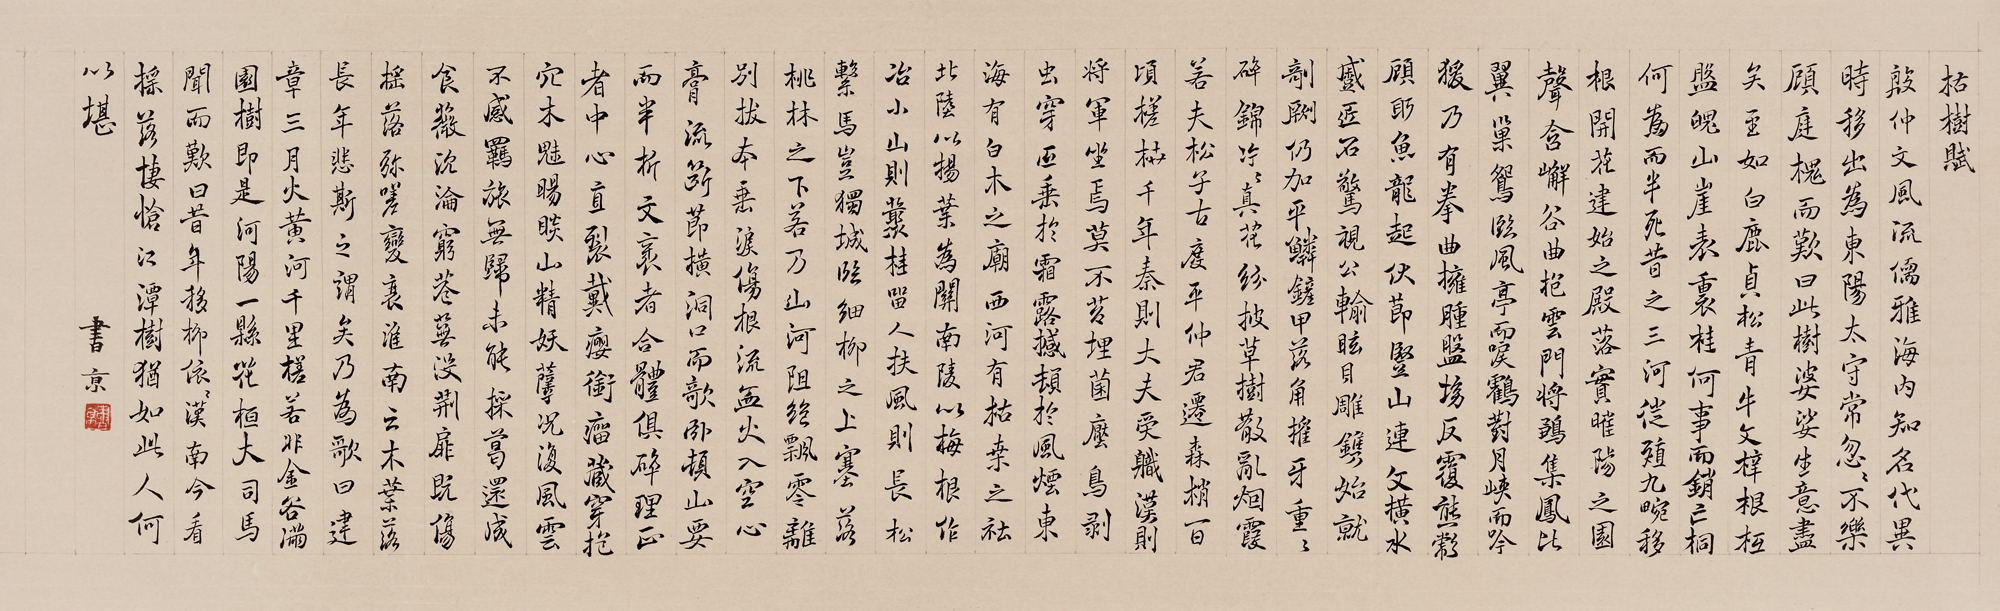 枯樹賦
殷仲文風流儒雅海內知名代異
時移出為東陽太守常忽〻不樂
顧庭槐而歎曰此樹婆娑生意盡
矣至如白鹿貞松青牛文梓根柢
盤魄山崖表裏桂何事而銷亡桐
何為而半死昔之三河徙殖九畹移
根開花建始之殿落實睢陽之園
聲含嶰谷曲抱雲門將鶵集鳳比
翼巢鴛臨風亭而唳鶴對月峽而吟
猨乃有拳曲擁腫盤坳反覆熊彪
顧盼魚龍起伏節豎山連文橫水
蹙匠石驚視公輸眩目雕鐫始就
剞劂仍加平鱗鏟甲落角摧牙重〻
碎錦片〻真花紛披草樹散亂烟霞
若夫松子古度平仲君遷森梢百
頃槎枿千年秦則大夫受職漢則
將軍坐焉莫不苔埋菌壓鳥剥
虫穿或垂於霜露撼頓於風煙東
海有白木之廟西河有枯桑之社
北陸以揚葉為關南陵以梅根作
冶小山則叢桂留人扶風則長松
繫馬豈獨城臨細柳之上塞落
桃林之下若乃山河阻絕飄零離
別拔本垂淚傷根流血火入空心
膏流斷節橫洞口而欹卧頓山要
而半折文衺者合體俱碎理正
者中心直裂戴癭銜瘤藏穿抱
穴木魅睗睒山精妖孽況復風雲
不感羈旅無歸未能採葛還成
食薇沉淪窮巷蕪沒荆扉既傷
搖落弥嗟變衰淮南云木葉落
長年悲斯之謂矣乃為歌曰建
章三月火黃河千里槎若非金谷滿
園樹即是河陽一縣花桓大司馬
聞而歎曰昔年移柳依〻漢南今看
搖落悽愴江潭樹猶如此人何
以堪
書京